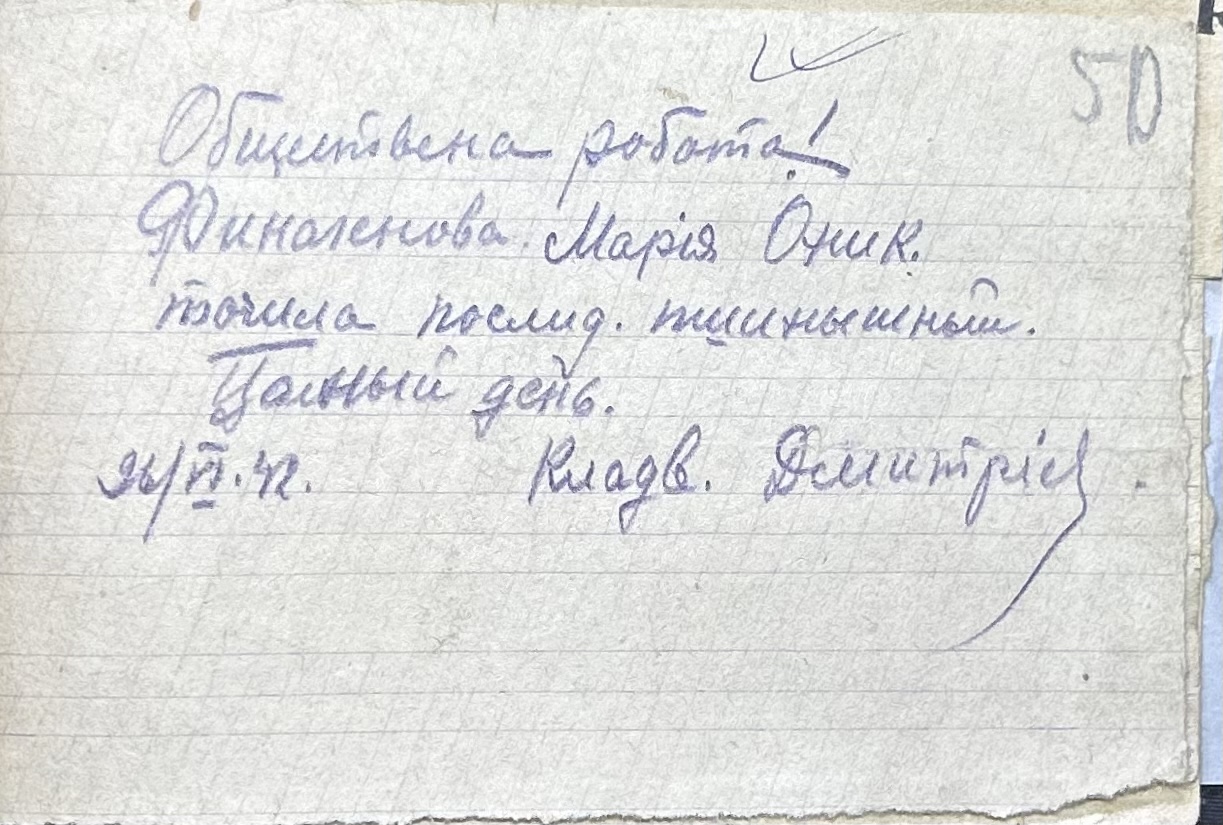 50
Обществена робота!
Финаженова Марія Оник.
точила послид. пшинышный.
Цалный день.
26/VI.42. Кладв. Дмитрієв.